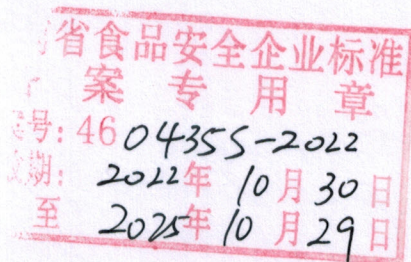 省食品安全企业标准
案专用章
号: 460435S-2022
期: 2022年10月30日
至 2025年10月29日